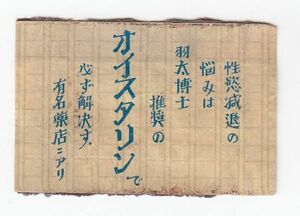 性慾減退の
悩みは
羽太博士
推奨の
オイスタリンで
必ず解決す
有名薬店ニアリ